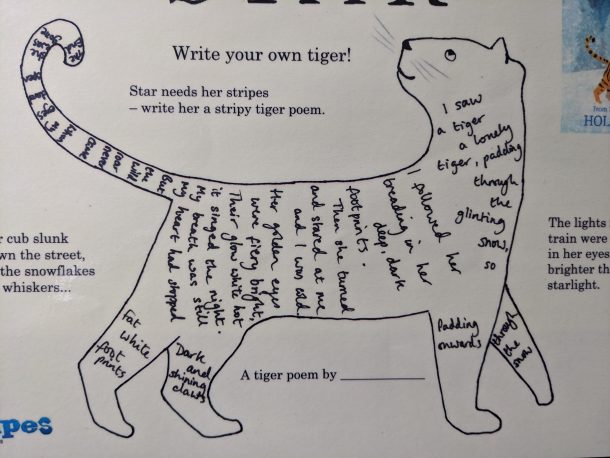 Write your own tiger!
Star needs her stripes
– write her a stripy tiger poem.
I saw
a tiger
a lonely
tiger, padding
through
the
glinting
snow,
so
I followed her
treading in her
deep, dark
footprints.
Then she turned
and stared at me
and I was cold.
Her golden eyes
were fiery bright,
Their glow white hot
it singed the night.
My breath was still
my heart had stopped
But
the wild
roar
never
came
Padding
onwards
through
the
snow
Dark
and
shining
claws
Fat
white
foot
prints
A tiger poem by
cub slunk
wn the street,
the snowflakes
whiskers...
The lights
train were
in her eyes
brighter th
starlight.
From
HOL
pes